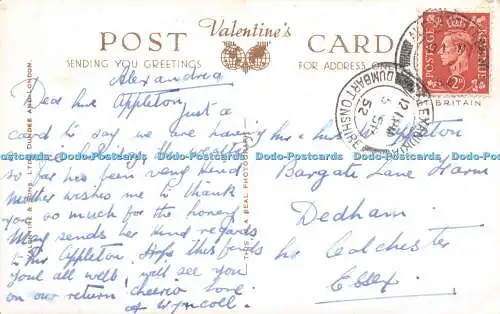 Valentine's
POST CARD
SENDING YOU GREETINGS FOR ADDRESS ONLY
Alexandria
Dear Mrs Appleton
Just a
card to say we are having
the weather
so far has been very kind
Mother wishes me to thank
you so much for the honey
Mummy sends her kind regards
to Mr Appleton, hope this finds
you all well, will see you
on our return, cheerio love.
Mr & Mrs Appleton
Bargate Lane Farm
Dedham.
Nr Colchester
Essex.
VALENTINE & SONS LTD. DUNDEE AND LONDON.
THIS IS A REAL PHOTOGRAPH
BRITAIN
12 15 PM
5 SE
52
DUNBARTONSHIRE
POSTAGE REVENUE
2D
www.worldofpostcards.co.uk